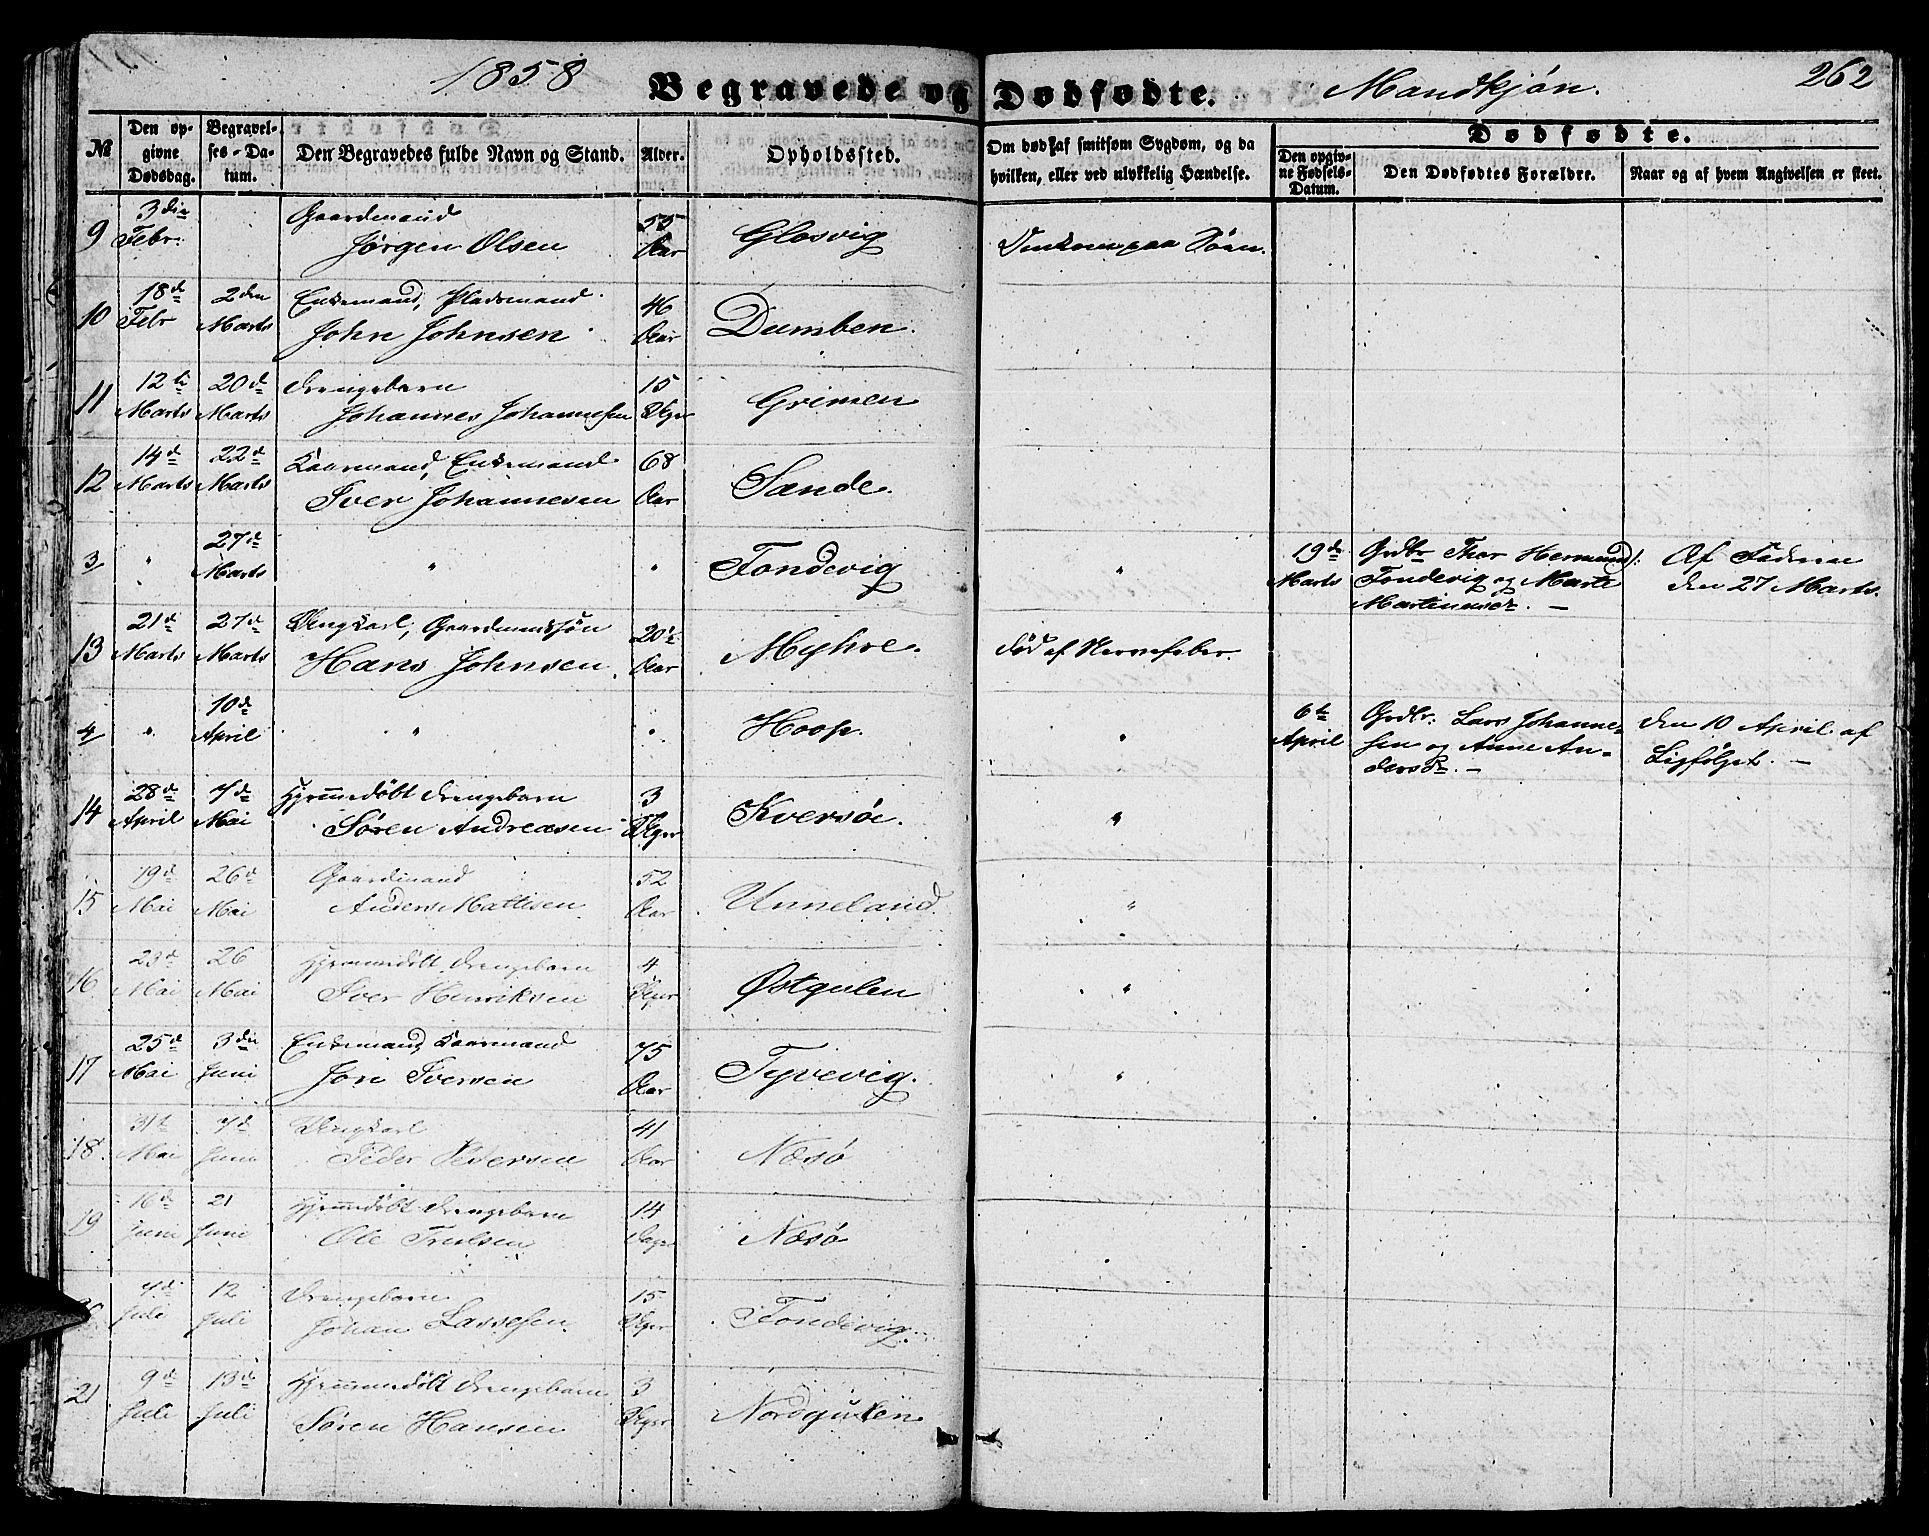 1858 Begravede og Dødfødte. Mandkjøn. 262
№ Den opgivne Dødsdag. Begravelses-Datum. Den Begravedes fulde Navn og Stand. Alder. Opholdssted. Om død af smitsom Sygdom, og da hvilken, eller ved ulykkelig Hændelse. Dødfødte.
Den opgivne Fødsels-Datum. Den Dødfødtes Forældre. Naar og af hvem Angivelsen er skeet.
9 3die Febr. Gaardmand 55
Jørgen Olsen Aar Glosvig Omkom paa Søen.
10 18d Febr 2den Marts Enkemand, Pladsmand 46
John Johnsen Aar Dumben.
11 12te Marts 20d Marts Drengebarn 15
Johannes Johannessen Uger Grimen
12 14d Marts 22d Marts Kaarmand, Enkemand 68
Iver Johannesen Aar Sande.
3 " 27d Marts " " Tondevig " 19de Marts Grdbr Thor Hermund/: Af Faderen
Tondevig og Marte den 27 Marts.
Martinusdr. —
13 21d Marts 27d Marts Ungkarl, Gaardmandssøn 20½
Hans Johnsen. Aar Myhre. død af Nervefeber.
4 " 10d April " " Hoop. " 6te April Grdbr. Lars Johanne- den 10 April af
sen og Anne An- Ligfølget. —
dersdr. —
14 28d April 7d Mai Hjemmedøbt Drengebarn 3
Søren Andreasen Uger Kversøe. "
15 19d Mai 26d Mai Gaardmand 52
Anders Mattisen Aar Unneland. "
16 23d Mai 26 Mai Hjemmedøbt Drengebarn 4
Iver Henriksen Uger Østgulen "
17 25d Mai 3die Juni Enkemand, Kaarmand 75
Jon Iversen Aar Tyvevig. "
18. 31te Mai 7d Juni Ungkarl 41
Peder Pedersen Aar Næsø
19 16d Juni 21 Juni Hjemmedøbt Drengebarn 14
Ole Trulsen Dage Næsø
20 7de Juli 12 Juli Drengebarn 15
Johan Lassesen. Uger Tondevig.
21 9de Juli 13de Juli Hjemmedøbt Drengebarn 3
Søren Hansen Uger Nordgulen